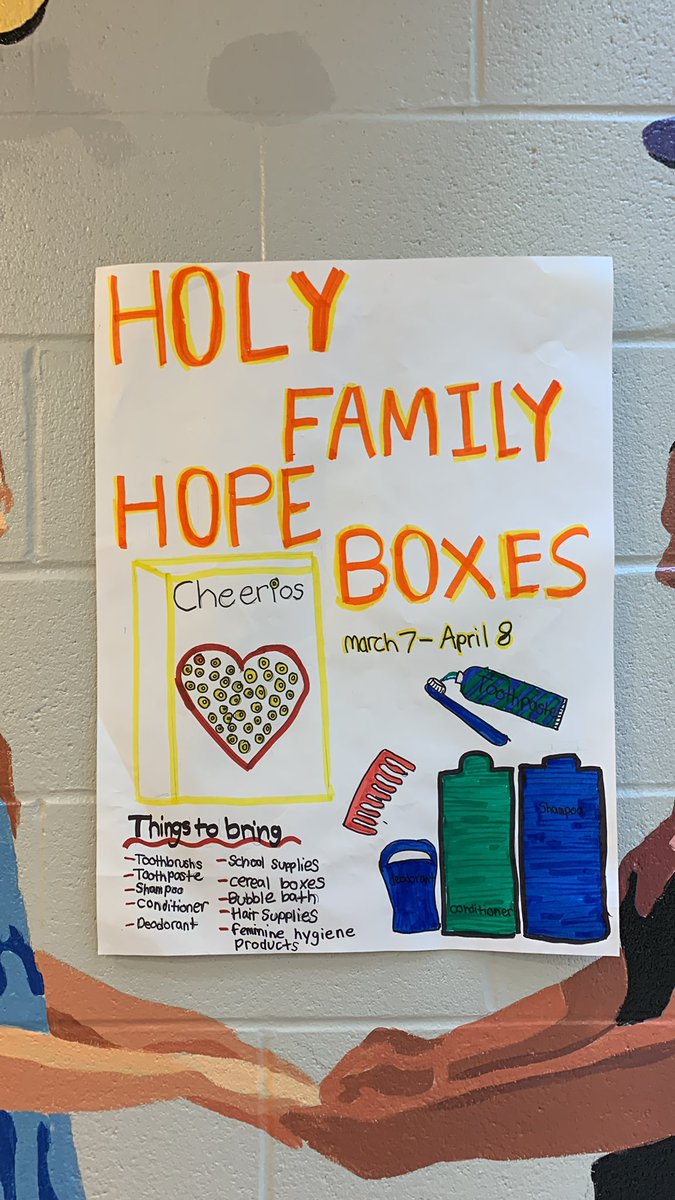 HOLY
FAMILY
HOPE
BOXES
march 7 - April 8
Cheerios
Toothpaste
Things to bring
- Toothbrushs
- Toothpaste
- Shampoo
- Conditioner
- Deodorant
- School supplies
- cereal boxes
- Bubble bath
- Hair Supplies
- feminine hygiene
products
Deodorant
conditioner
Shampoo